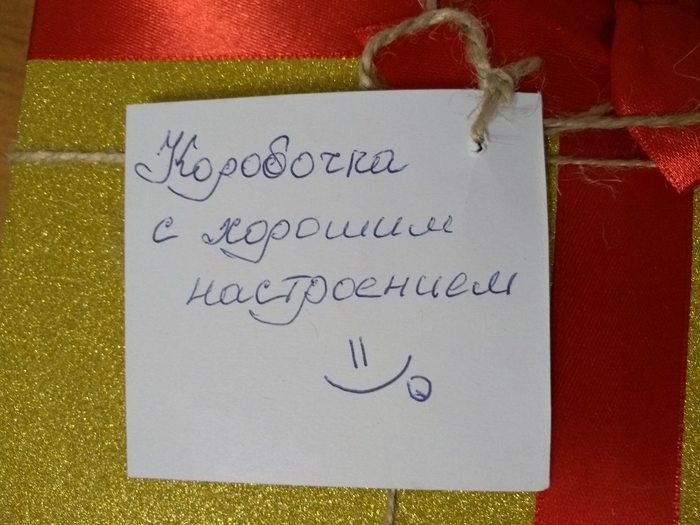 Коробочка
с хорошим
настроением